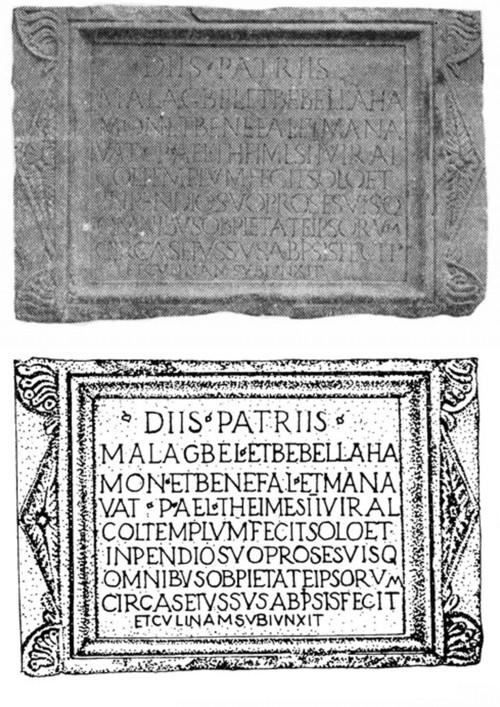 DIIS·PATRIIS
MALAGBEL·ETBEBELLAHA
MON·ETBENEFAL·ETMANA
VAT·P·AEL·THEIMESIIVIRAL
COLTEMPLVMFECITSOLOET
INPENDIOSVOPROSESVISQ
OMNIBVSOBPIETATEIPSORVM
CIRCASEIVSSVSABIPSISFECIT
ETCVLINAMSVBIVNXIT
DIIS·PATRIIS
MALAGBEL·ETBEBELLAHA
MON·ETBENEFAL·ETMANA
VAT·P·AEL·THEIMESIIVIRAL
COLTEMPLVMFECITSOLOET
INPENDIOSVOPROSESVISQ
OMNIBVSOBPIETATEIPSORVM
CIRCASEIVSSVSABIPSISFECIT
ETCVLINAMSVBIVNXIT